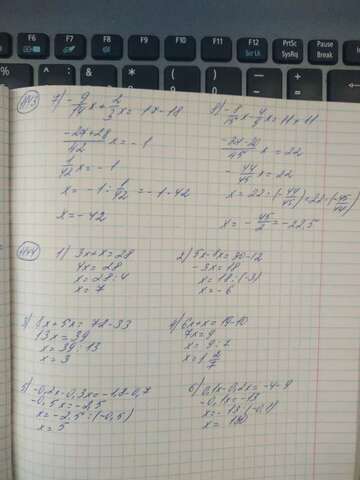 F6 F7 F8 F9 F10 F11 F12 PrtSc Pause
Scr Lk SysRq Break
№43 7) -9/14 x + 2/3 x = -17+18
-27+28/42 x = -1
1/42 x = -1
x = -1 : 1/42 = -1·42
x = -42
8) -3/5 x - 4/9 x = 11+11
-27-20/45 x = 22
-44/45 x = 22
x = 22 : (-44/45) = 22·(-45/44)
x = -45/2 = -22,5
№44 1) 3x+x=28
4x=28
x=28:4
x=7
2) 5x-8x=30-12
-3x=18
x=18:(-3)
x=-6
3) 8x+5x=72-33
13x=39
x=39:13
x=3
4) 6x+x=19-10
7x=9
x=9:7
x=1 2/7
5) -0,2x-0,3x=-1,8-0,7
-0,5x=-2,5
x=-2,5:(-0,5)
x=5
6) 0,1x-0,2x=-4-9
-0,1x=-13
x=-13:(-0,1)
x=130